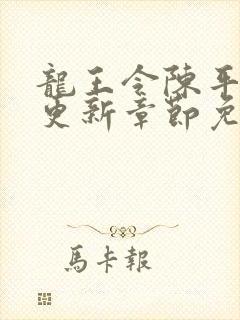 龍王令陳平
更新章節免
馬卡報